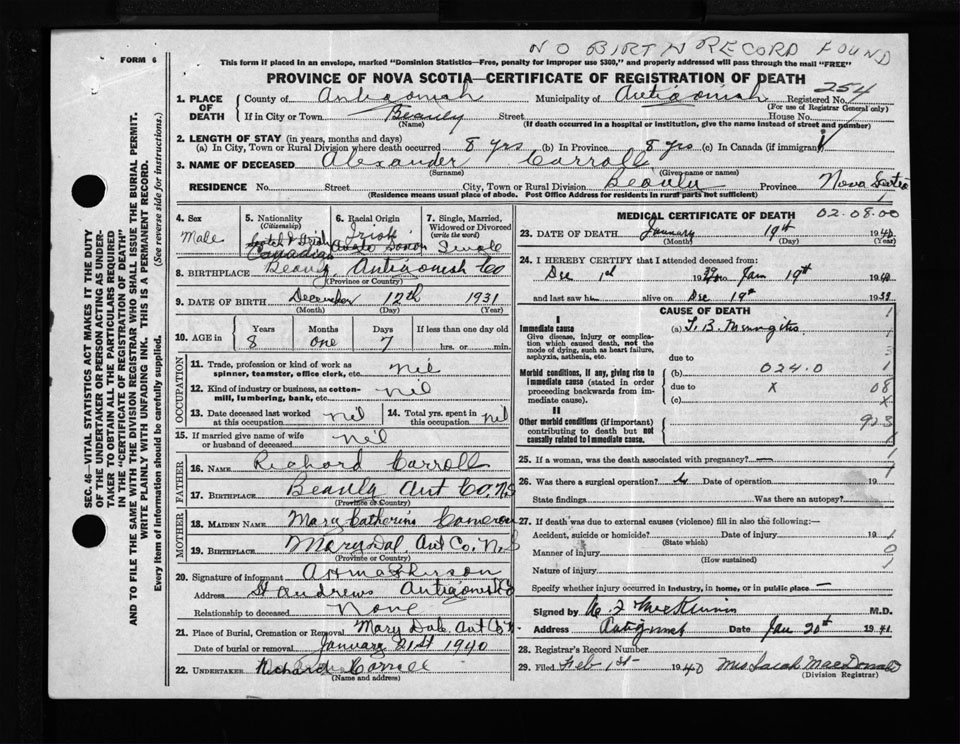 NO BIRTH RECORD FOUND
FORM 6
This form if placed in an envelope, marked "Dominion Statistics—Free, penalty for improper use $300," and properly addressed will pass through the mail "FREE"
PROVINCE OF NOVA SCOTIA—CERTIFICATE OF REGISTRATION OF DEATH
254
1. PLACE OF DEATH County of Antigonish Municipality of Antigonish Registered No.
(For use of Registrar General only)
If in City or Town Beauly Street House No.
(Name) (If death occurred in a hospital or institution, give the name instead of street and number)
2. LENGTH OF STAY (in years, months and days)
(a) In City, Town or Rural Division where death occurred 8 yrs (b) In Province 8 yrs (c) In Canada (if immigrant)
3. NAME OF DECEASED Alexander Carroll
(Surname) (Given name or names)
RESIDENCE No. Street City, Town or Rural Division Beauly Province Nova Scotia
(Residence means usual place of abode. Post Office Address for residents in rural parts not sufficient)
4. Sex Male
5. Nationality (Citizenship) Scotch & Irish Canadian
6. Racial Origin Irish
7. Single, Married, Widowed or Divorced (write the word) Single
8. BIRTHPLACE Beauly Antigonish Co
(Province or Country)
9. DATE OF BIRTH December 12th 1931
(Month) (Day) (Year)
10. AGE in Years Months Days If less than one day old
8 one 7 hrs. or min.
OCCUPATION
11. Trade, profession or kind of work as spinner, teamster, office clerk, etc. nil
12. Kind of industry or business, as cotton-mill, lumbering, bank, etc. nil
13. Date deceased last worked at this occupation nil 14. Total yrs. spent in this occupation nil
15. If married give name of wife or husband of deceased nil
FATHER
16. NAME Richard Carroll
17. BIRTHPLACE Beauly Ant Co. N.S
(Province or Country)
MOTHER
18. MAIDEN NAME Mary Catherine Cameron
19. BIRTHPLACE Marydal Ant Co. N.S
(Province or Country)
20. Signature of informant
Address St Andrews Antigonish Co
Relationship to deceased None
21. Place of Burial, Cremation or Removal Mary Dale Ant Co
Date of burial or removal January 21st 1940
22. UNDERTAKER Richard Carroll
(Name and address)
MEDICAL CERTIFICATE OF DEATH 02.08.00
23. DATE OF DEATH January 19th 1940
(Month) (Day) (Year)
24. I HEREBY CERTIFY that I attended deceased from:
Dec 1st 1939 to Jan 19th 1940
and last saw him alive on Dec 19th 1939
CAUSE OF DEATH
I
Immediate cause (a) T. B. Meningitis
Give disease, injury or complication which caused death, not the mode of dying, such as heart failure, asphyxia, asthenia, etc.
due to
Morbid conditions, if any, giving rise to immediate cause (stated in order proceeding backwards from immediate cause).
(b) 024.0
due to x 08
(c) x
II
Other morbid conditions (if important) contributing to death but not causally related to immediate cause.
923
25. If a woman, was the death associated with pregnancy? —
26. Was there a surgical operation? Date of operation 19
State findings Was there an autopsy?
27. If death was due to external causes (violence) fill in also the following:—
Accident, suicide or homicide? Date of injury 19
(State which)
Manner of injury
(How sustained)
Nature of injury
Specify whether injury occurred in industry, in home, or in public place —
Signed by M.D.
Address Date Jan 20th 1941
28. Registrar's Record Number
29. Filed Feb 1st 1940 Mrs Sarah MacDonald
(Division Registrar)
SEC. 46—VITAL STATISTICS ACT MAKES IT THE DUTY
OF THE UNDERTAKER OR PERSON ACTING AS UNDER-
TAKER TO OBTAIN ALL THE PARTICULARS REQUIRED
IN THE "CERTIFICATE OF REGISTRATION OF DEATH"
AND TO FILE THE SAME WITH THE DIVISION REGISTRAR WHO SHALL ISSUE THE BURIAL PERMIT.
WRITE PLAINLY WITH UNFADING INK. THIS IS A PERMANENT RECORD.
Every item of information should be carefully supplied. (See reverse side for instructions.)